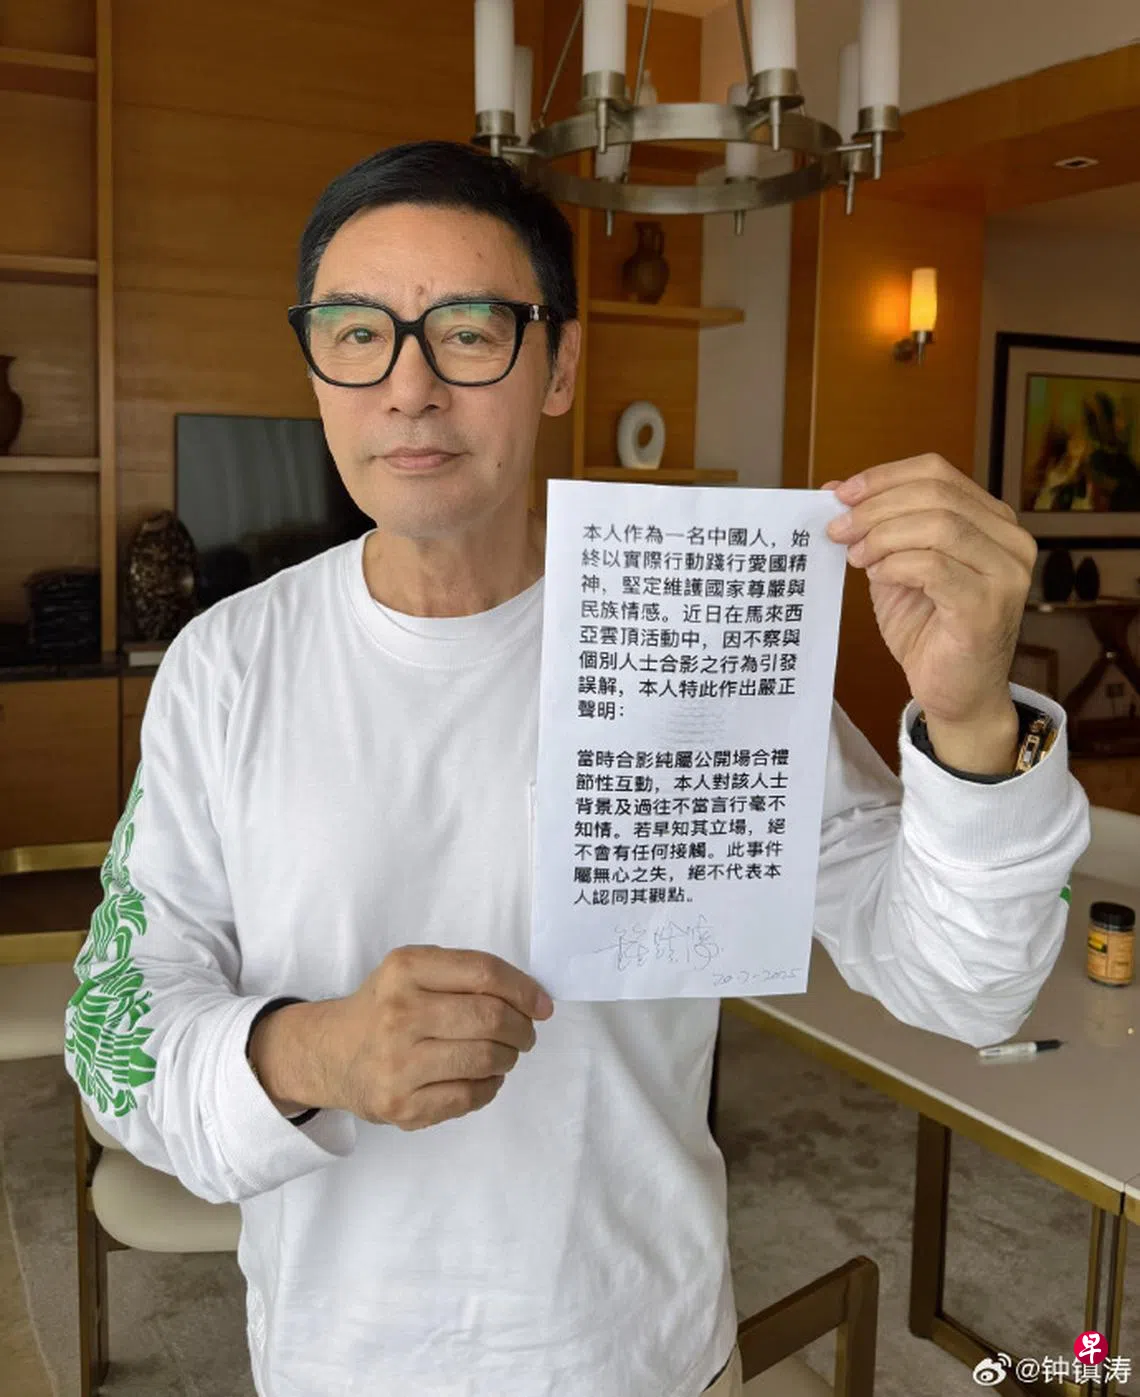 本人作為一名中國人，始
終以實際行動踐行愛國精
神，堅定維護國家尊嚴與
民族情感。近日在馬來西
亞雲頂活動中，因不察與
個別人士合影之行為引發
誤解，本人特此作出嚴正
聲明：
當時合影純屬公開場合禮
節性互動，本人對該人士
背景及過往不當言行毫不
知情。若早知其立場，絕
不會有任何接觸。此事件
屬無心之失，絕不代表本
人認同其觀點。
鍾鎮濤
20-7-2025
早
@钟镇涛